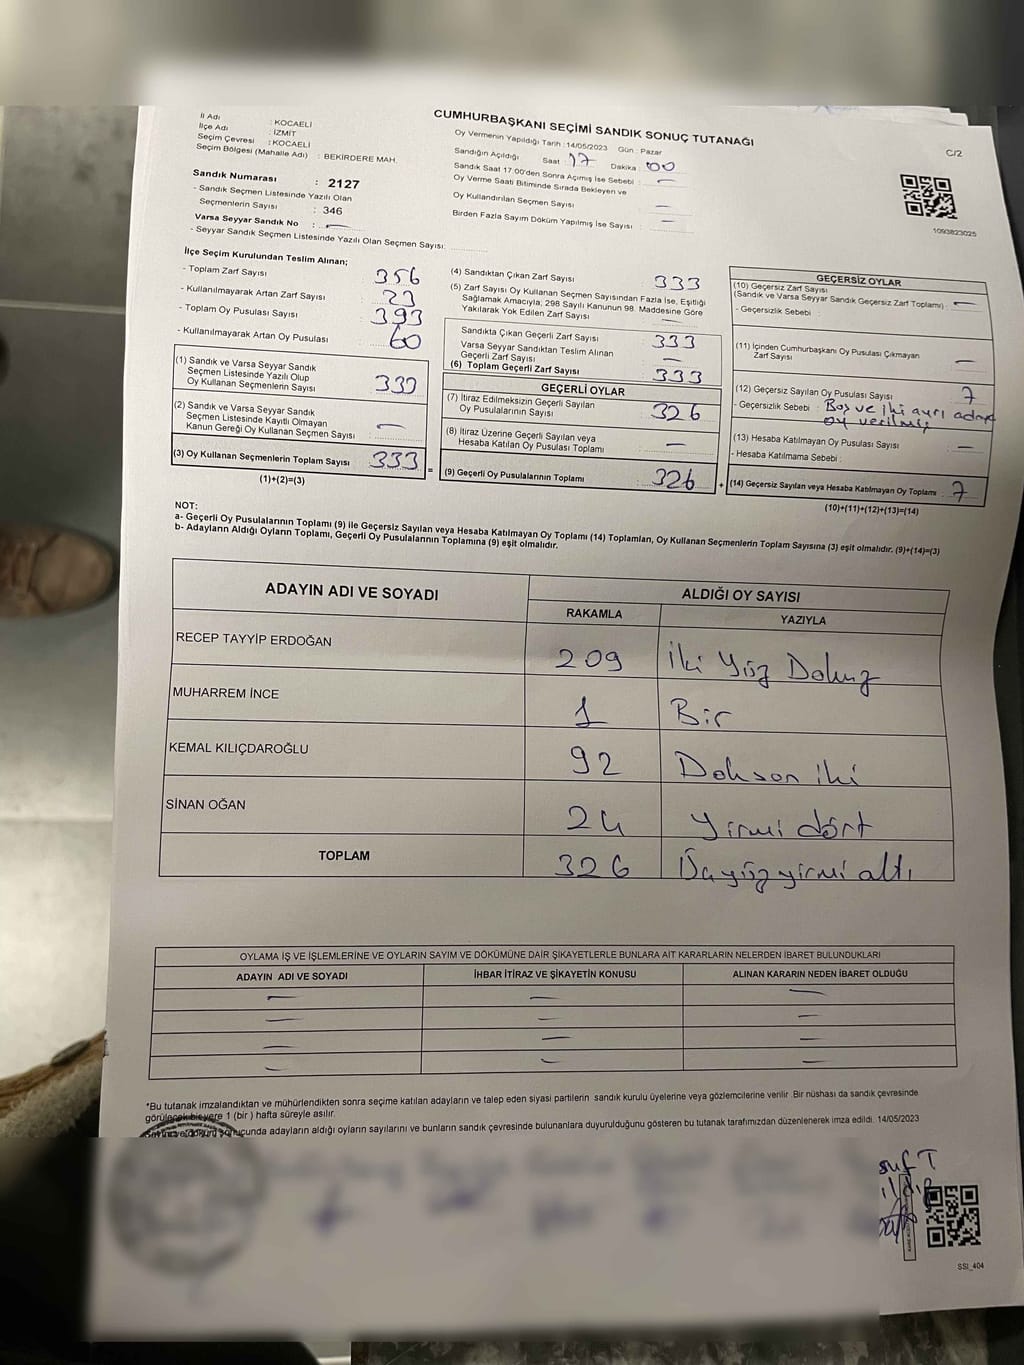 İl Adı : KOCAELİ
İlçe Adı : İZMİT
Seçim Çevresi : KOCAELİ
Seçim Bölgesi (Mahalle Adı) : BEKİRDERE MAH.
Sandık Numarası : 2127
- Sandık Seçmen Listesinde Yazılı Olan
Seçmenlerin Sayısı : 346
Varsa Seyyar Sandık No : —
- Seyyar Sandık Seçmen Listesinde Yazılı Olan Seçmen Sayısı:
CUMHURBAŞKANI SEÇİMİ SANDIK SONUÇ TUTANAĞI
Oy Vermenin Yapıldığı Tarih : 14/05/2023 Gün : Pazar
Sandığın Açıldığı Saat : 17 Dakika : 00
Sandık Saat 17.00'den Sonra Açımış İse Sebebi : —
Oy Verme Saati Bitiminde Sırada Bekleyen ve
Oy Kullandırılan Seçmen Sayısı —
Birden Fazla Sayım Döküm Yapılmış İse Sayısı : —
C/2
1093823025
İlçe Seçim Kurulundan Teslim Alınan;
- Toplam Zarf Sayısı 356
- Kullanılmayarak Artan Zarf Sayısı 23
- Toplam Oy Pusulası Sayısı 393
- Kullanılmayarak Artan Oy Pusulası 60
(1) Sandık ve Varsa Seyyar Sandık
Seçmen Listesinde Yazılı Olup
Oy Kullanan Seçmenlerin Sayısı 333
(2) Sandık ve Varsa Seyyar Sandık
Seçmen Listesinde Kayıtlı Olmayan
Kanun Gereği Oy Kullanan Seçmen Sayısı —
(3) Oy Kullanan Seçmenlerin Toplam Sayısı 333 =
(1)+(2)=(3)
(4) Sandıktan Çıkan Zarf Sayısı 333
(5) Zarf Sayısı Oy Kullanan Seçmen Sayısından Fazla İse, Eşitliği
Sağlamak Amacıyla; 298 Sayılı Kanunun 98. Maddesine Göre
Yakılarak Yok Edilen Zarf Sayısı —
Sandıkta Çıkan Geçerli Zarf Sayısı 333
Varsa Seyyar Sandıktan Teslim Alınan
Geçerli Zarf Sayısı —
(6) Toplam Geçerli Zarf Sayısı 333
GEÇERLİ OYLAR
(7) İtiraz Edilmeksizin Geçerli Sayılan
Oy Pusulalarının Sayısı 326
(8) İtiraz Üzerine Geçerli Sayılan veya
Hesaba Katılan Oy Pusulası Toplamı —
(9) Geçerli Oy Pusulalarının Toplamı 326 +
GEÇERSİZ OYLAR
(10) Geçersiz Zarf Sayısı
(Sandık ve Varsa Seyyar Sandık Geçersiz Zarf Toplamı) : —
- Geçersizlik Sebebi :
(11) İçinden Cumhurbaşkanı Oy Pusulası Çıkmayan
Zarf Sayısı —
(12) Geçersiz Sayılan Oy Pusulası Sayısı 7
- Geçersizlik Sebebi : Boş ve iki ayrı adaya
oy verilmiş
(13) Hesaba Katılmayan Oy Pusulası Sayısı —
- Hesaba Katılmama Sebebi :
(14) Geçersiz Sayılan veya Hesaba Katılmayan Oy Toplamı 7
(10)+(11)+(12)+(13)=(14)
NOT:
a- Geçerli Oy Pusulalarının Toplamı (9) ile Geçersiz Sayılan veya Hesaba Katılmayan Oy Toplamı (14) Toplamları, Oy Kullanan Seçmenlerin Toplam Sayısına (3) eşit olmalıdır. (9)+(14)=(3)
b- Adayların Aldığı Oyların Toplamı, Geçerli Oy Pusulalarının Toplamına (9) eşit olmalıdır.
ADAYIN ADI VE SOYADI ALDIĞI OY SAYISI
RAKAMLA YAZIYLA
RECEP TAYYİP ERDOĞAN 209 İki Yüz Dokuz
MUHARREM İNCE 1 Bir
KEMAL KILIÇDAROĞLU 92 Doksan iki
SİNAN OĞAN 24 Yirmi dört
TOPLAM 326 Üçyüzyirmi altı
OYLAMA İŞ VE İŞLEMLERİNE VE OYLARIN SAYIM VE DÖKÜMÜNE DAİR ŞİKAYETLERLE BUNLARA AİT KARARLARIN NELERDEN İBARET BULUNDUKLARI
ADAYIN ADI VE SOYADI İHBAR İTİRAZ VE ŞİKAYETİN KONUSU ALINAN KARARIN NEDEN İBARET OLDUĞU
— — —
— — —
— — —
— — —
*Bu tutanak imzalandıktan ve mühürlendikten sonra seçime katılan adayların ve talep eden siyasi partilerin sandık kurulu üyelerine veya gözlemcilerine verilir. Bir nüshası da sandık çevresinde
görülecek bir yere 1 (bir) hafta süreyle asılır.
sonucunda adayların aldığı oyların sayılarını ve bunların sandık çevresinde bulunanlara duyurulduğunu gösteren bu tutanak tarafımızdan düzenlenerek imza edildi. 14/05/2023
SSI_404